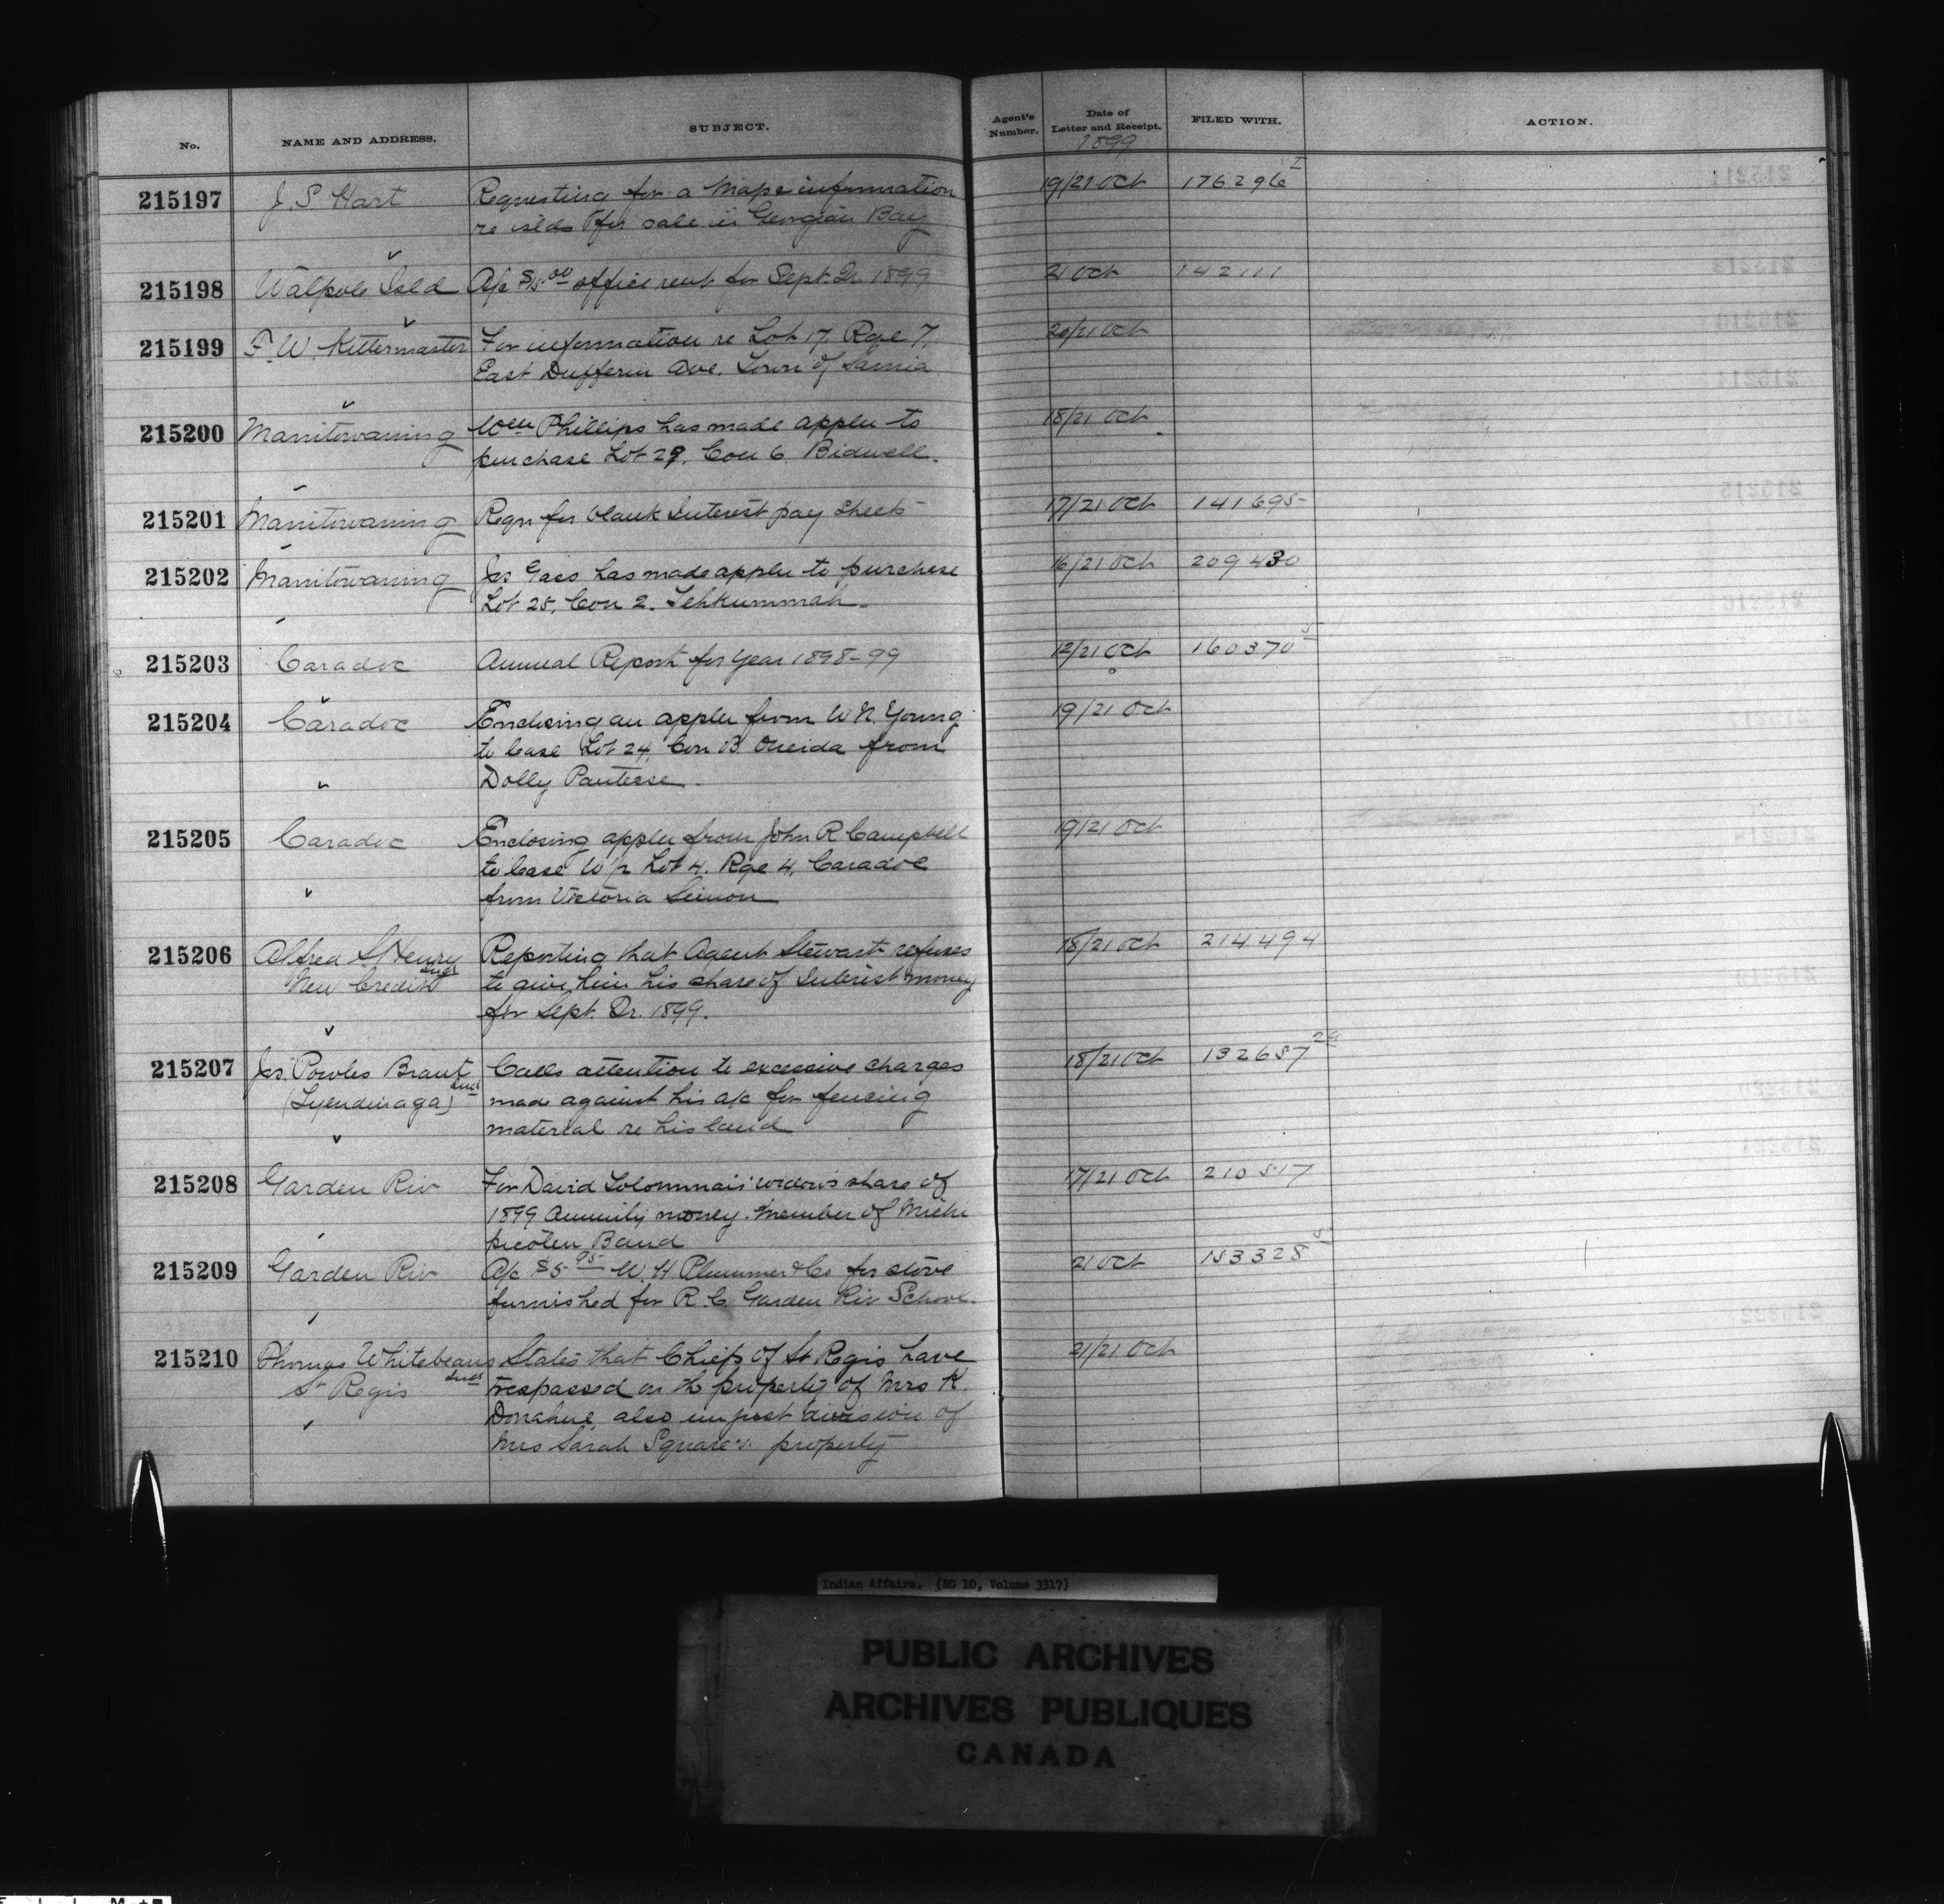 No. NAME AND ADDRESS. SUBJECT. Agent's Number. Date of Letter and Receipt. FILED WITH. ACTION.
1899
215197 J. S. Hart Requesting for a Map & information 19/21 Oct 176296 I
re islds for sale in Georgian Bay
215198 Walpole Isld A/c $5.00 office rent for Sept. Qr. 1899 21 Oct 142111
215199 F. W. Kittermaster For information re Lot 17. Rge 7. 20/21 Oct
East Dufferin Ave. Town of Sarnia
215200 Manitowaning Wm Phillips has made appln to 18/21 Oct
purchase Lot 29, Con 6, Bidwell.
215201 Manitowaning Reqn for blank Interest pay sheets 17/21 Oct 141695
215202 Manitowaning Jas Gass has made appln to purchase 16/21 Oct 209430
Lot 25, Con 2. Tehkummah.
215203 Caradoc Annual Report for year 1898-99 12/21 Oct 160370
215204 Caradoc Enclosing an appln from W N. Young 19/21 Oct
to lease Lot 24, Con B. Oneida from
Dolly
215205 Caradoc Enclosing appln from John R Campbell 19/21 Oct
to lease W/2 Lot 4. Rge 4, Caradoc
from Victoria Simon
215206 Alfred S. Henry Reporting that Agent Stewart refuses 18/21 Oct 214494
New Credit to give him his share of Interest money
for Sept. Qr. 1899.
215207 Jas. Powles Brant Calls attention to excessive charges 18/21 Oct 132657
(Tyendinaga) made against his a/c for fencing
material re his land
215208 Garden Riv For David widow's share of 17/21 Oct 210517
1899 annuity money. Member of Michi
picoten Band
215209 Garden Riv A/c $5.95 W. H Plummer & Co for stove 21 Oct 153328
furnished for R. C. Garden Riv School.
215210 Thomas Whitebeans States that Chiefs of St Regis have 21/21 Oct
St Regis trespassed on the property of Mrs K.
Donahue, also unjust division of
Mrs Sarah Square's property
Indian Affairs. (RG 10, Volume 3317)
PUBLIC ARCHIVES
ARCHIVES PUBLIQUES
CANADA